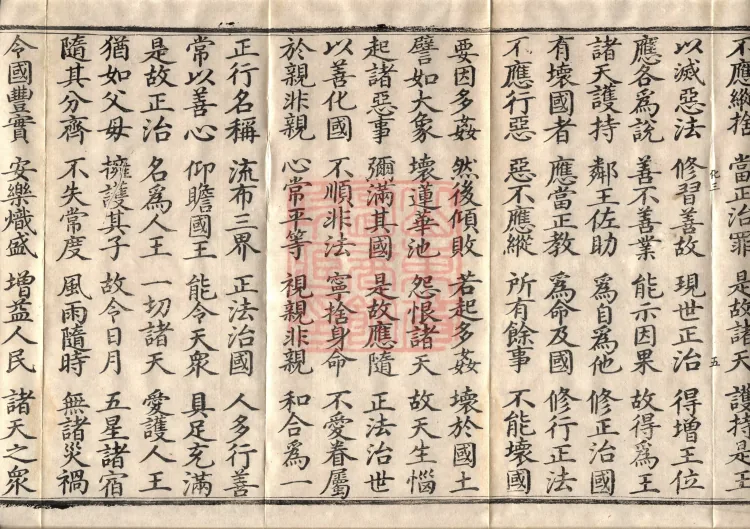 不應縱捨 當正治罪 是故諸天 護持是王
化三 五
以滅惡法 修習善故 現世正治 得增王位
應各爲說 善不善業 能示因果 故得爲王
諸天護持 鄰王佐助 爲自爲他 修正治國
有壞國者 應當正教 爲命及國 修行正法
不應行惡 惡不應縱 所有餘事 不能壞國
要因多姦 然後傾敗 若起多姦 壞於國土
譬如大象 壞蓮華池 怨恨諸天 故天生惱
起諸惡事 彌滿其國 是故應隨 正法治世
以善化國 不順非法 寧捨身命 不愛眷屬
於親非親 心常平等 視親非親 和合爲一
正行名稱 流布三界 正法治國 人多行善
常以善心 仰瞻國王 能令天衆 具足充滿
是故正治 名爲人王 一切諸天 愛護人王
猶如父母 擁護其子 故令日月 五星諸宿
隨其分齊 不失常度 風雨隨時 無諸災禍
令國豐實 安樂熾盛 增益人民 諸天之衆